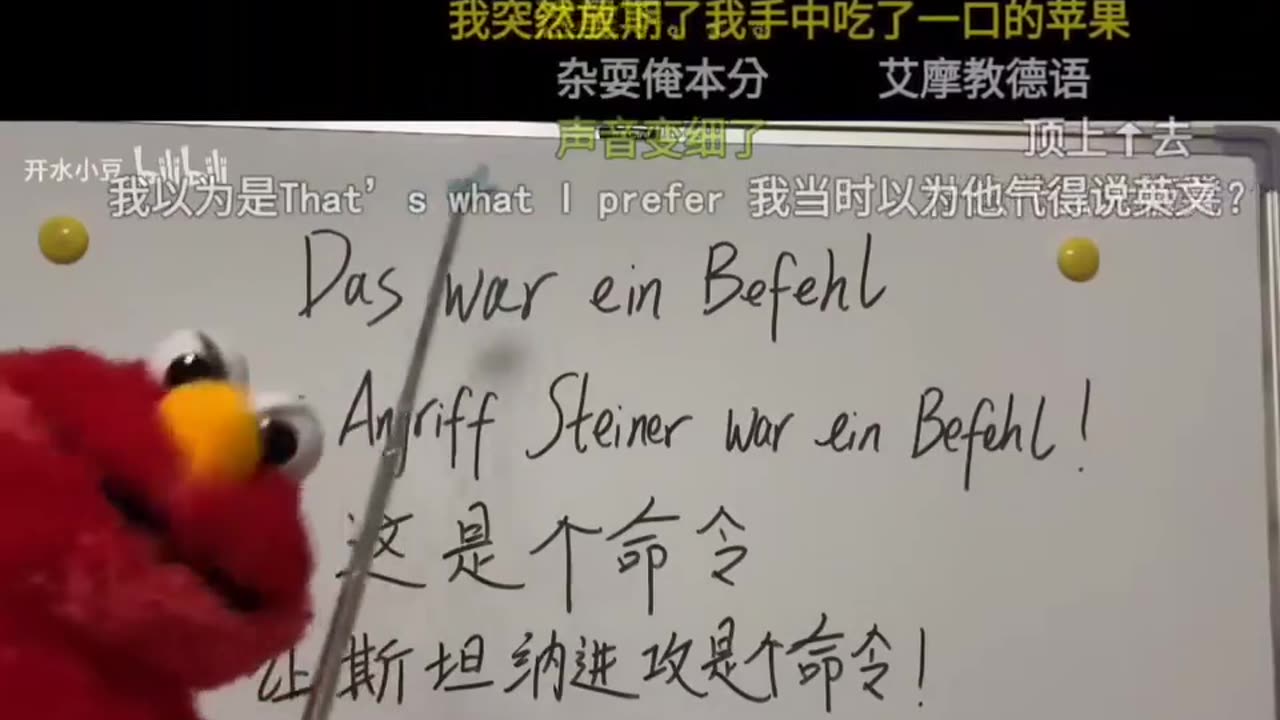 我突然放期了我手中吃了一口的苹果
杂耍俺本分 艾摩教德语
声音变细了 顶上↑去
开水小豆 bilibili
我以为是That's what I prefer 我当时以为他气得说英文?
Das war ein Befehl
Angriff Steiner war ein Befehl!
这是个命令
让斯坦纳进攻是个命令!